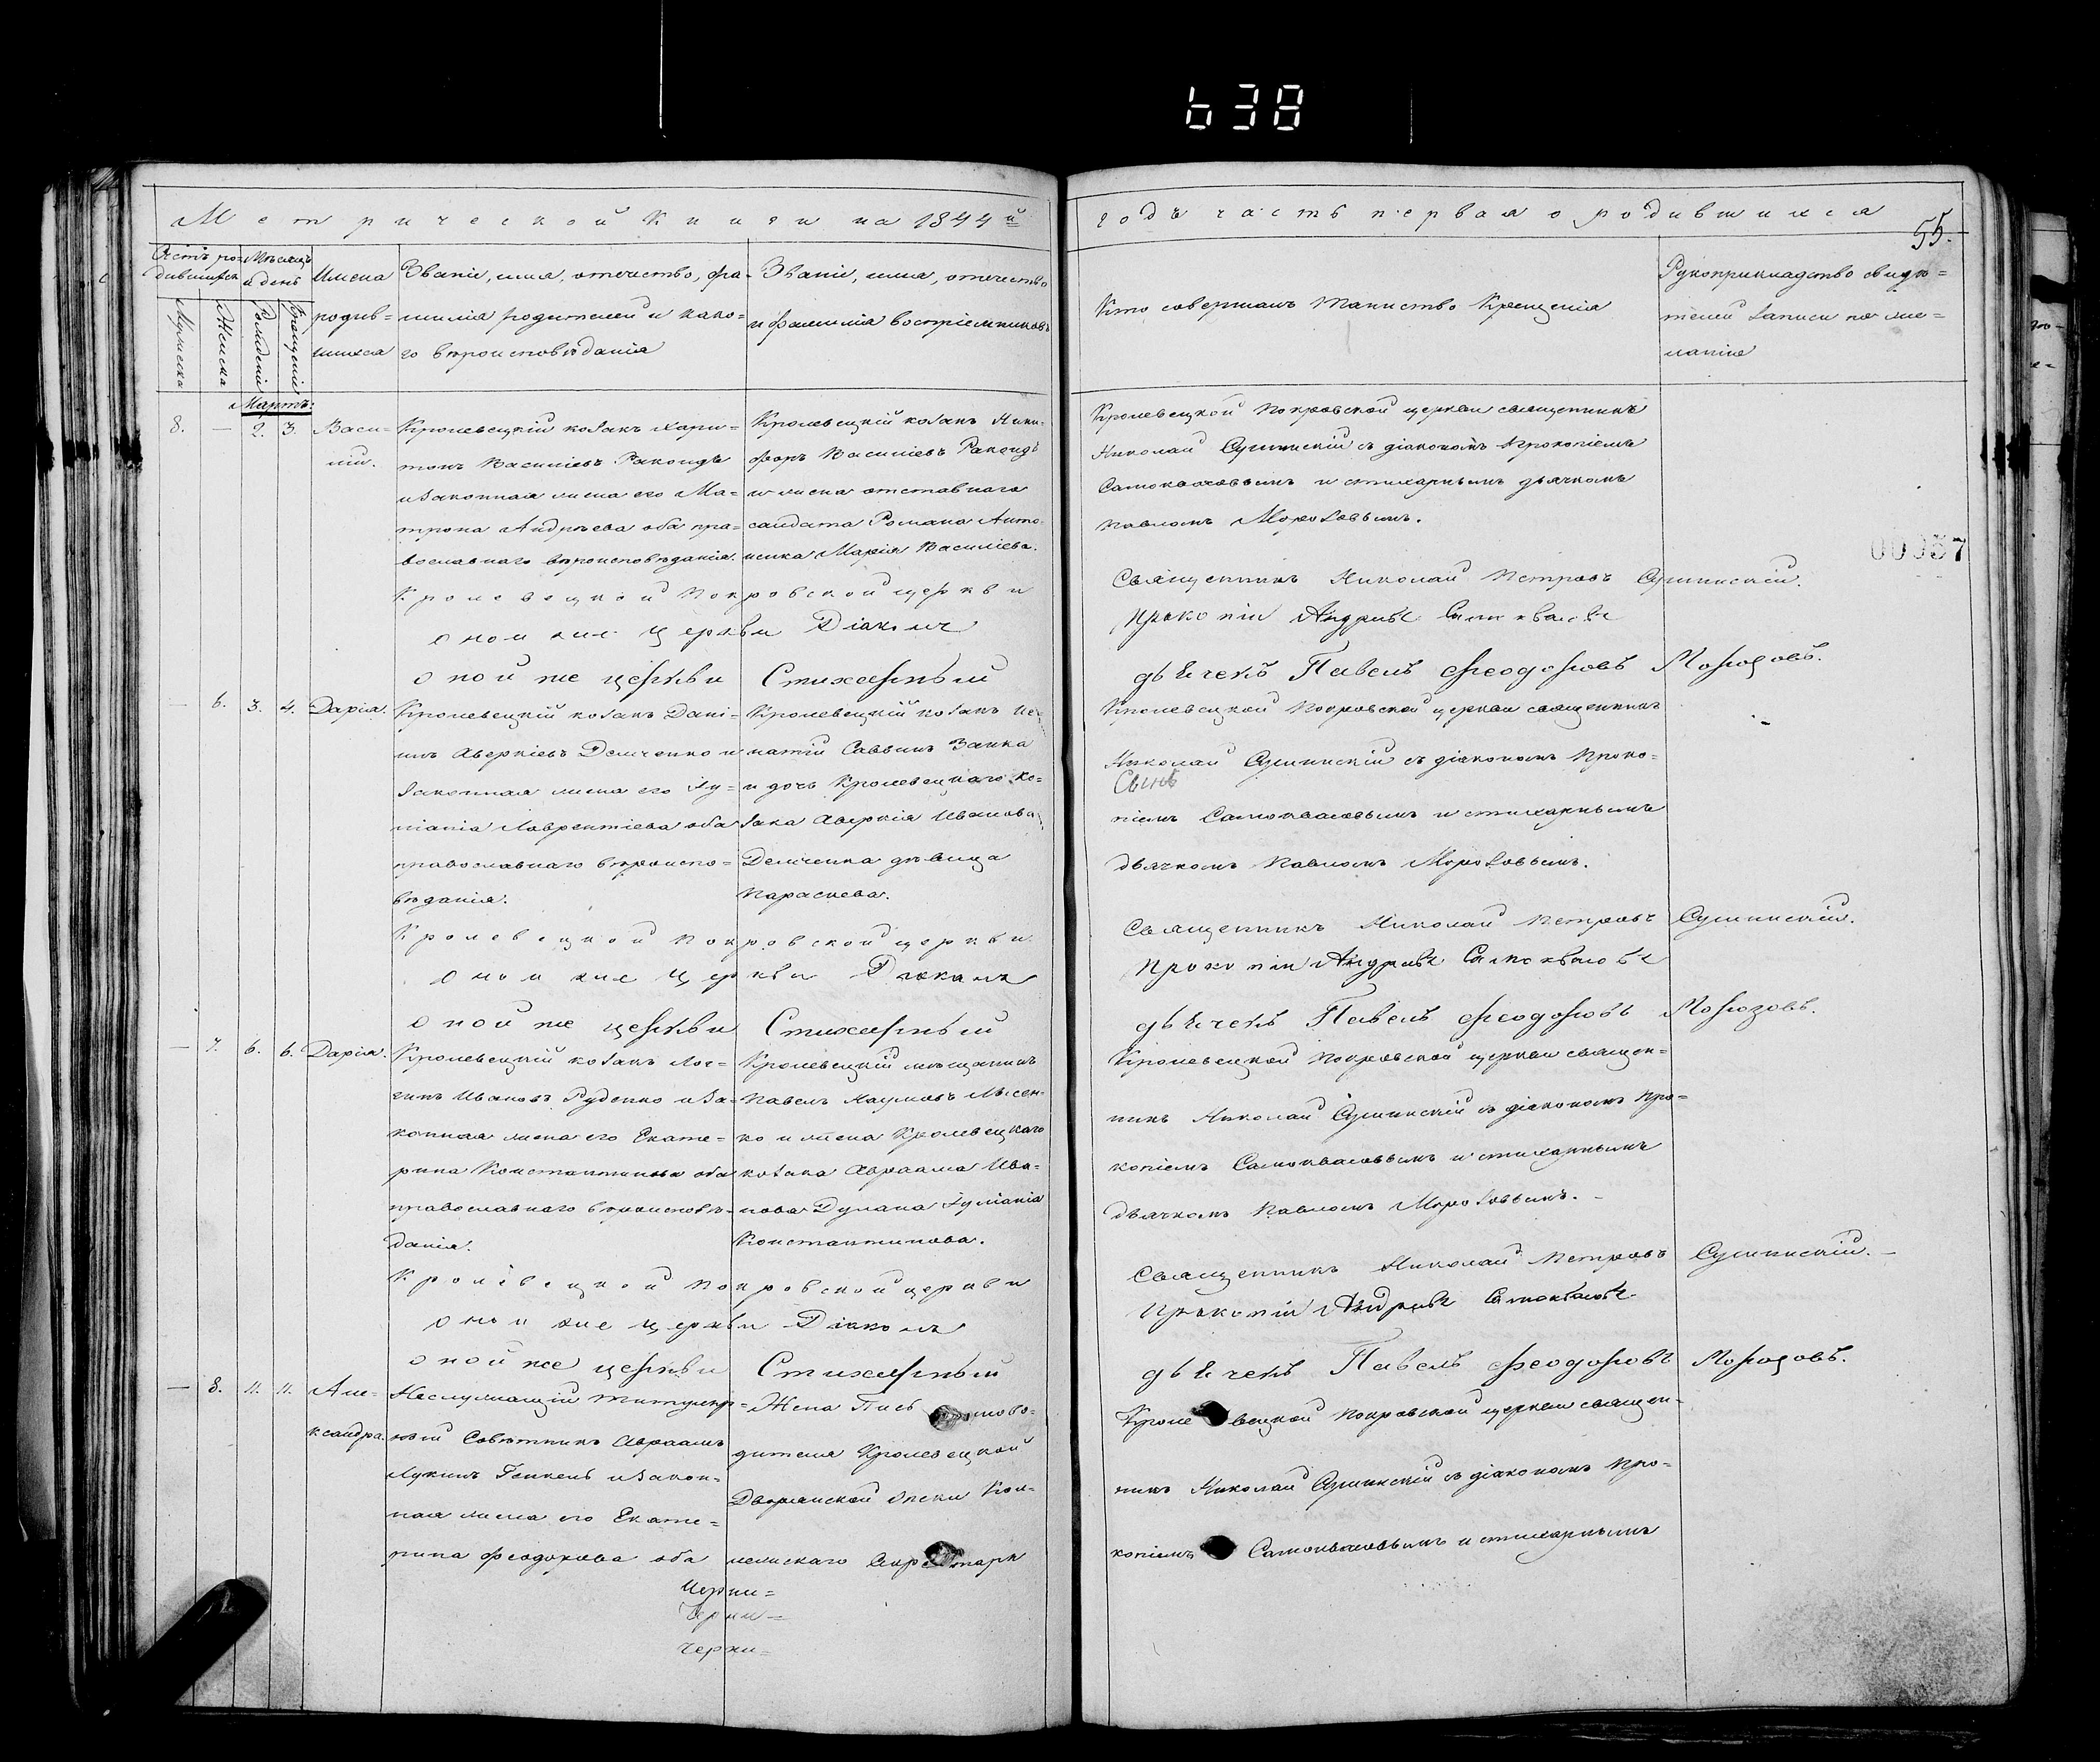 638
Метрической Книги на 1844й
годъ часть первая о родившихся
55.
Счетъ ро-
дившихся
Мѣсяцъ
и день
Мужеска
Женска
Рожденія
Крещенія
Имена
родив-
шихся
Званіе, имя, отечество, фа-
милія родителей и како-
го вѣроисповѣданія
Званіе, имя, отечество
и фамилія воспріемниковъ
Кто совершалъ таинство крещенія
Рукоприкладство свидѣ=
телей записи по же=
ланію
Мартъ:
8. — 2. 3.
Васи-
лій.
Кролевецкій козакъ Хари-
тонъ Василіевъ Ракоидъ
и законная жена его Ма=
трона Андреева оба пра=
вославнаго вѣроисповѣданія.
Кролевецкій козакъ Ники-
форъ Василіевъ Ракоидъ
и жена отставнаго
салдата Романа Анто-
ненка Марія Василіева.
Кролевецкой Покровской церкви священникъ
Николай Сушинскій съ діакономъ Прокопіемъ
Самоквасовымъ и стихарнымъ дьячкомъ
Павломъ Морозовымъ.
00057
Кролевецкой Покровской церкви
Священникъ Николай Петровъ Сушинскій.
оной же церкви Діаконъ
Прокопій Андреевъ Самоквасовъ
оной же церкви Стихарный
дьячекъ Павелъ Феодоровъ Морозовъ.
— 6. 3. 4. Дарія.
Кролевецкій козакъ Дані-
илъ Аверкіевъ Демченко и
законная жена его Іу-
ліанія Лаврентіева оба
православнаго вѣроиспо=
вѣданія.
Кролевецкій козакъ Иг-
натій Саввинъ Заика
и дочь Кролевецкаго ко=
зака Аверкія Иванова
Демченка дѣвица
Параскева.
Кролевецкой Покровской церкви священникъ
Николай Сушинскій съ діакономъ Проко=
піемъ Самоквасовымъ и стихарнымъ
дьячкомъ Павломъ Морозовымъ.
Кролевецкой Покровской церкви
Священникъ Николай Петровъ Сушинскій.
оной же церкви Діаконъ
Прокопій Андреевъ Самоквасовъ
оной же церкви Стихарный
дьячекъ Павелъ Феодоровъ Морозовъ.
— 7. 6. 6. Дарія.
Кролевецкій козакъ Лог-
гинъ Ивановъ Руденко и за-
конная жена его Екате-
рина Константинова оба
православнаго вѣроисповѣ-
данія.
Кролевецкій мѣщанинъ
Павелъ Наумовъ Лисен-
ко и жена Кролевецкаго
козака Авраама Ива-
нова Дунана Іуліанія
Константинова.
Кролевецкой Покровской церкви священ-
никъ Николай Сушинскій съ діакономъ Про=
копіемъ Самоквасовымъ и стихарнымъ
дьячкомъ Павломъ Морозовымъ.
Кролевецкой Покровской церкви
Священникъ Николай Петровъ Сушинскій.
оной же церкви Діаконъ
Прокопій Андреевъ Самоквасовъ
оной же церкви Стихарный
дьячекъ Павелъ Феодоровъ Морозовъ.
— 8. 11. 11.
Але-
ксандра.
Неслужащій титуляр=
ный Совѣтникъ Авраамъ
Лукинъ Генкель и закон-
ная жена его Екате=
рина Феодорова оба
Жена Письмово-
дителя Кролевецкой
Дворянской Опеки Кол-
лежскаго Секретаря
Черни=
Черни=
Черни=
Кролевецкой Покровской церкви священ-
никъ Николай Сушинскій съ діакономъ Про=
копіемъ Самоквасовымъ и стихарнымъ